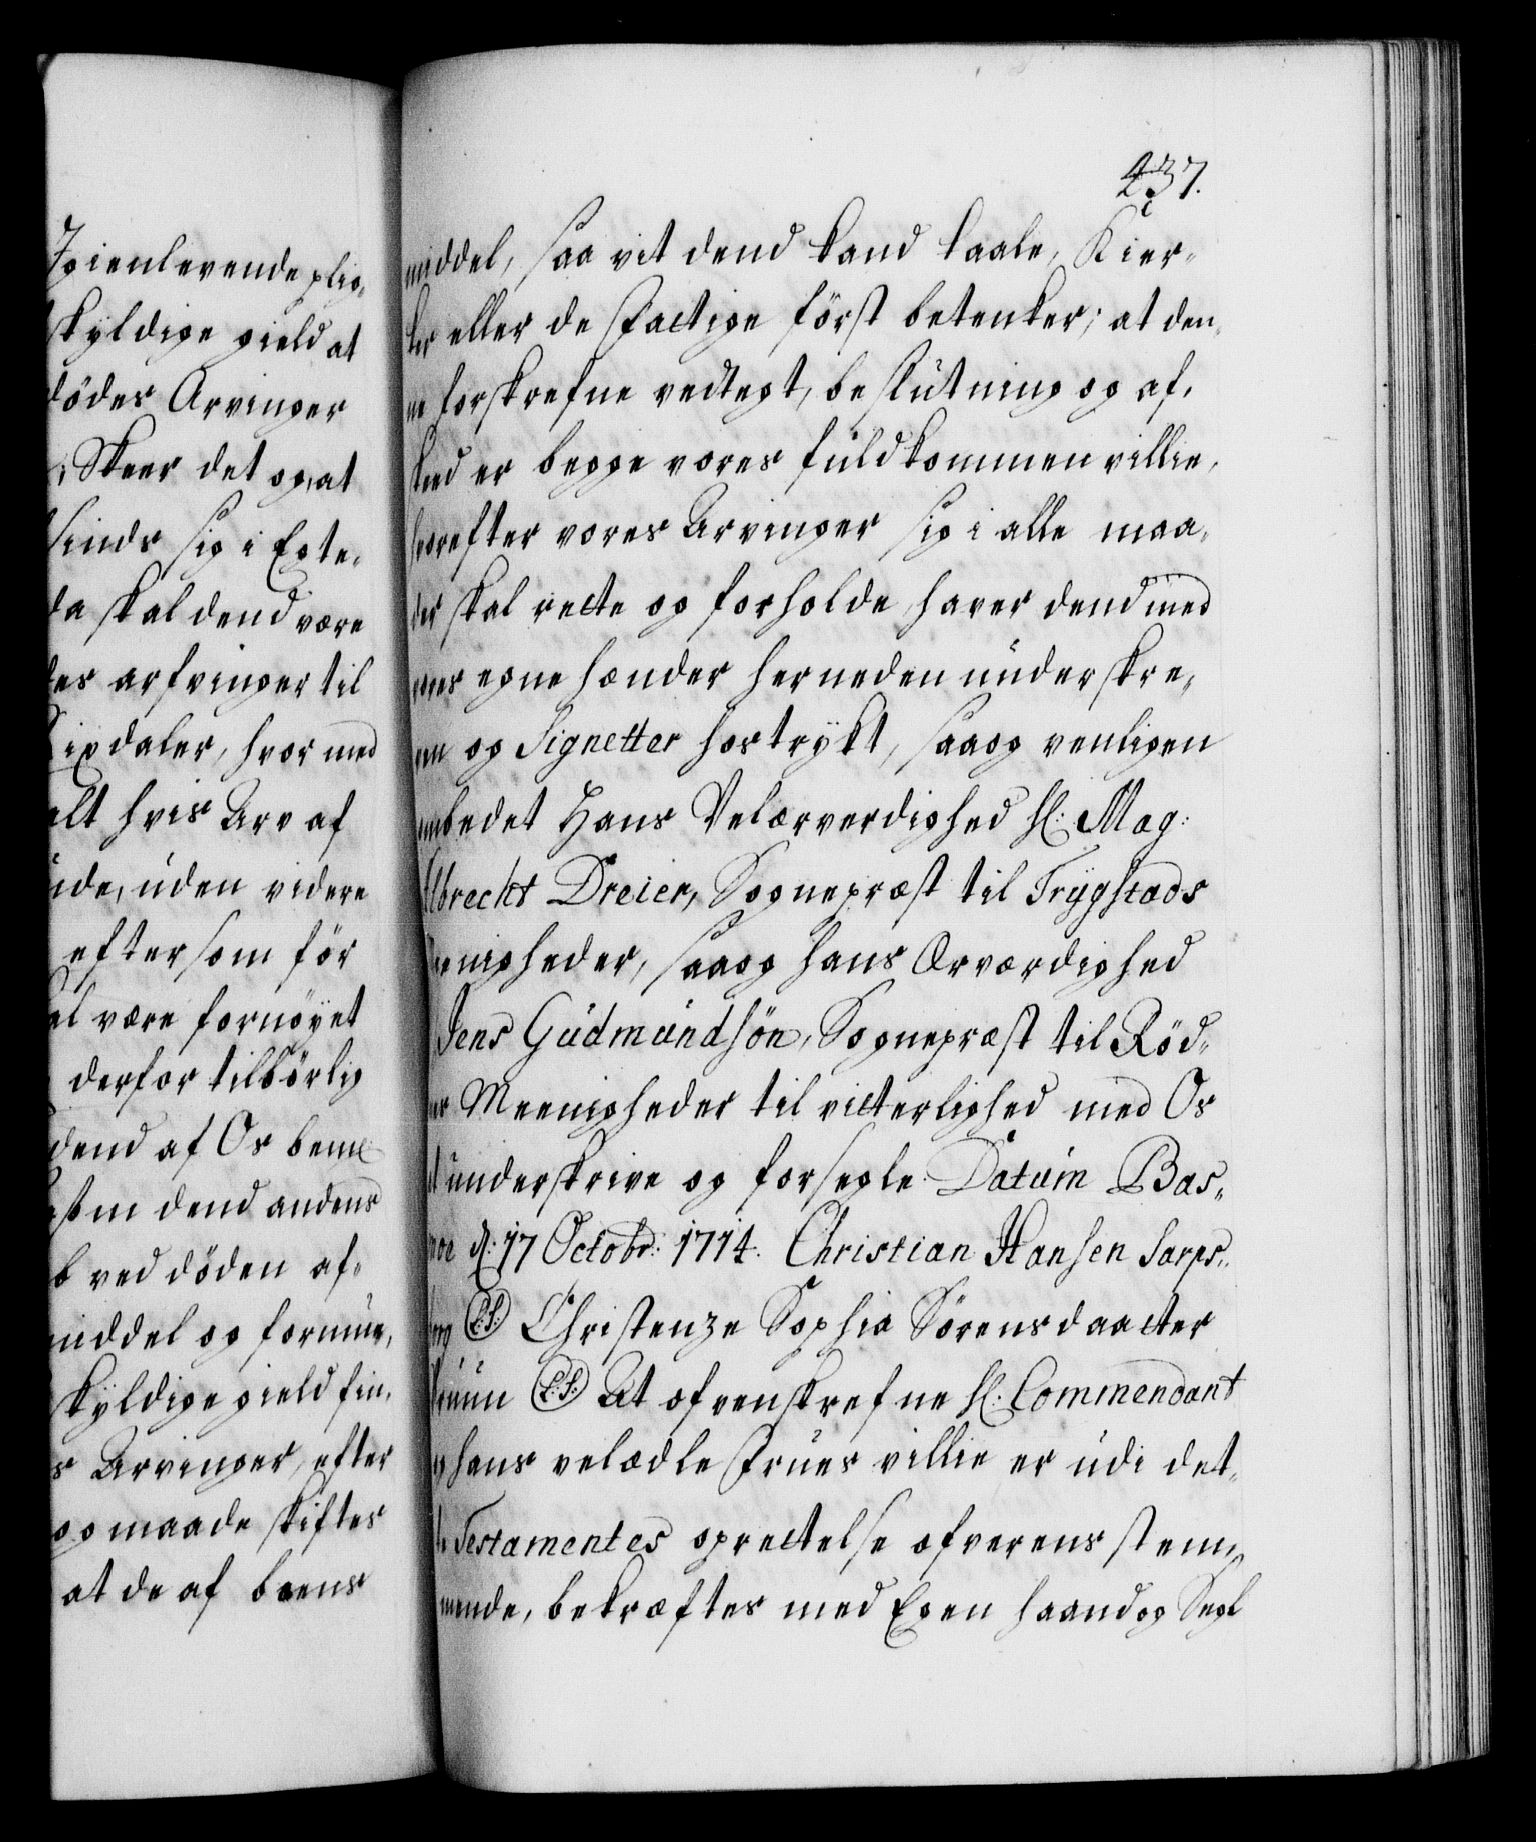 Igienlevende plig„
skyldige gield at
dödes Arvinger
; Skeer det og, at
sinds sig i Egte„
da skal dend være
des arfvinger til
Rixdaler, hvor med
alt hvis Arv af
uden videre
eftersom för
være fornöyet
derfor tilbörlig
dend af Os bem:
dend andens
ved döden af„
middel og formue,
skyldige gield fin„
Arvinger, efter
og maade skiftes
at de af boens
437.
middel, saa vit dend kand taale, Kier„
ker eller de Fattige först betenker; at den„
ne forskrefne vedtegt, beslutning og af„
skeed er begge vores fuldkommen villie,
hvorefter vores Arvinger sig i alle maa„
der skal rette og forholde, haver dend med
vores egne hænder herneden underskre„
ven og Signetter hostrykt, saa og venligen
ombedet Hans Velærverdighed Hr: Mag:
Albrecht Dreier, Sognepræst til Trygstads
Meenigheder, saa og hans Ærværdighed
Jens Gudmundsön, Sognepræst til Röd„
Meenigheder til vitterlighed med Os
at underskrive og forsegle. Datum Bas„
moe d: 17 Octobr: 1714. Christian Hansen Sarps„
borg (L:S:) Christenze Sophia Sörensdaatter
(L:S:) At ofvenskrefne Hr: Commendant
og hans velædle Frues villie er udi det„
te Testamentes oprettelse ofverens stem„
mende, bekræftes med Egen haand og Segl